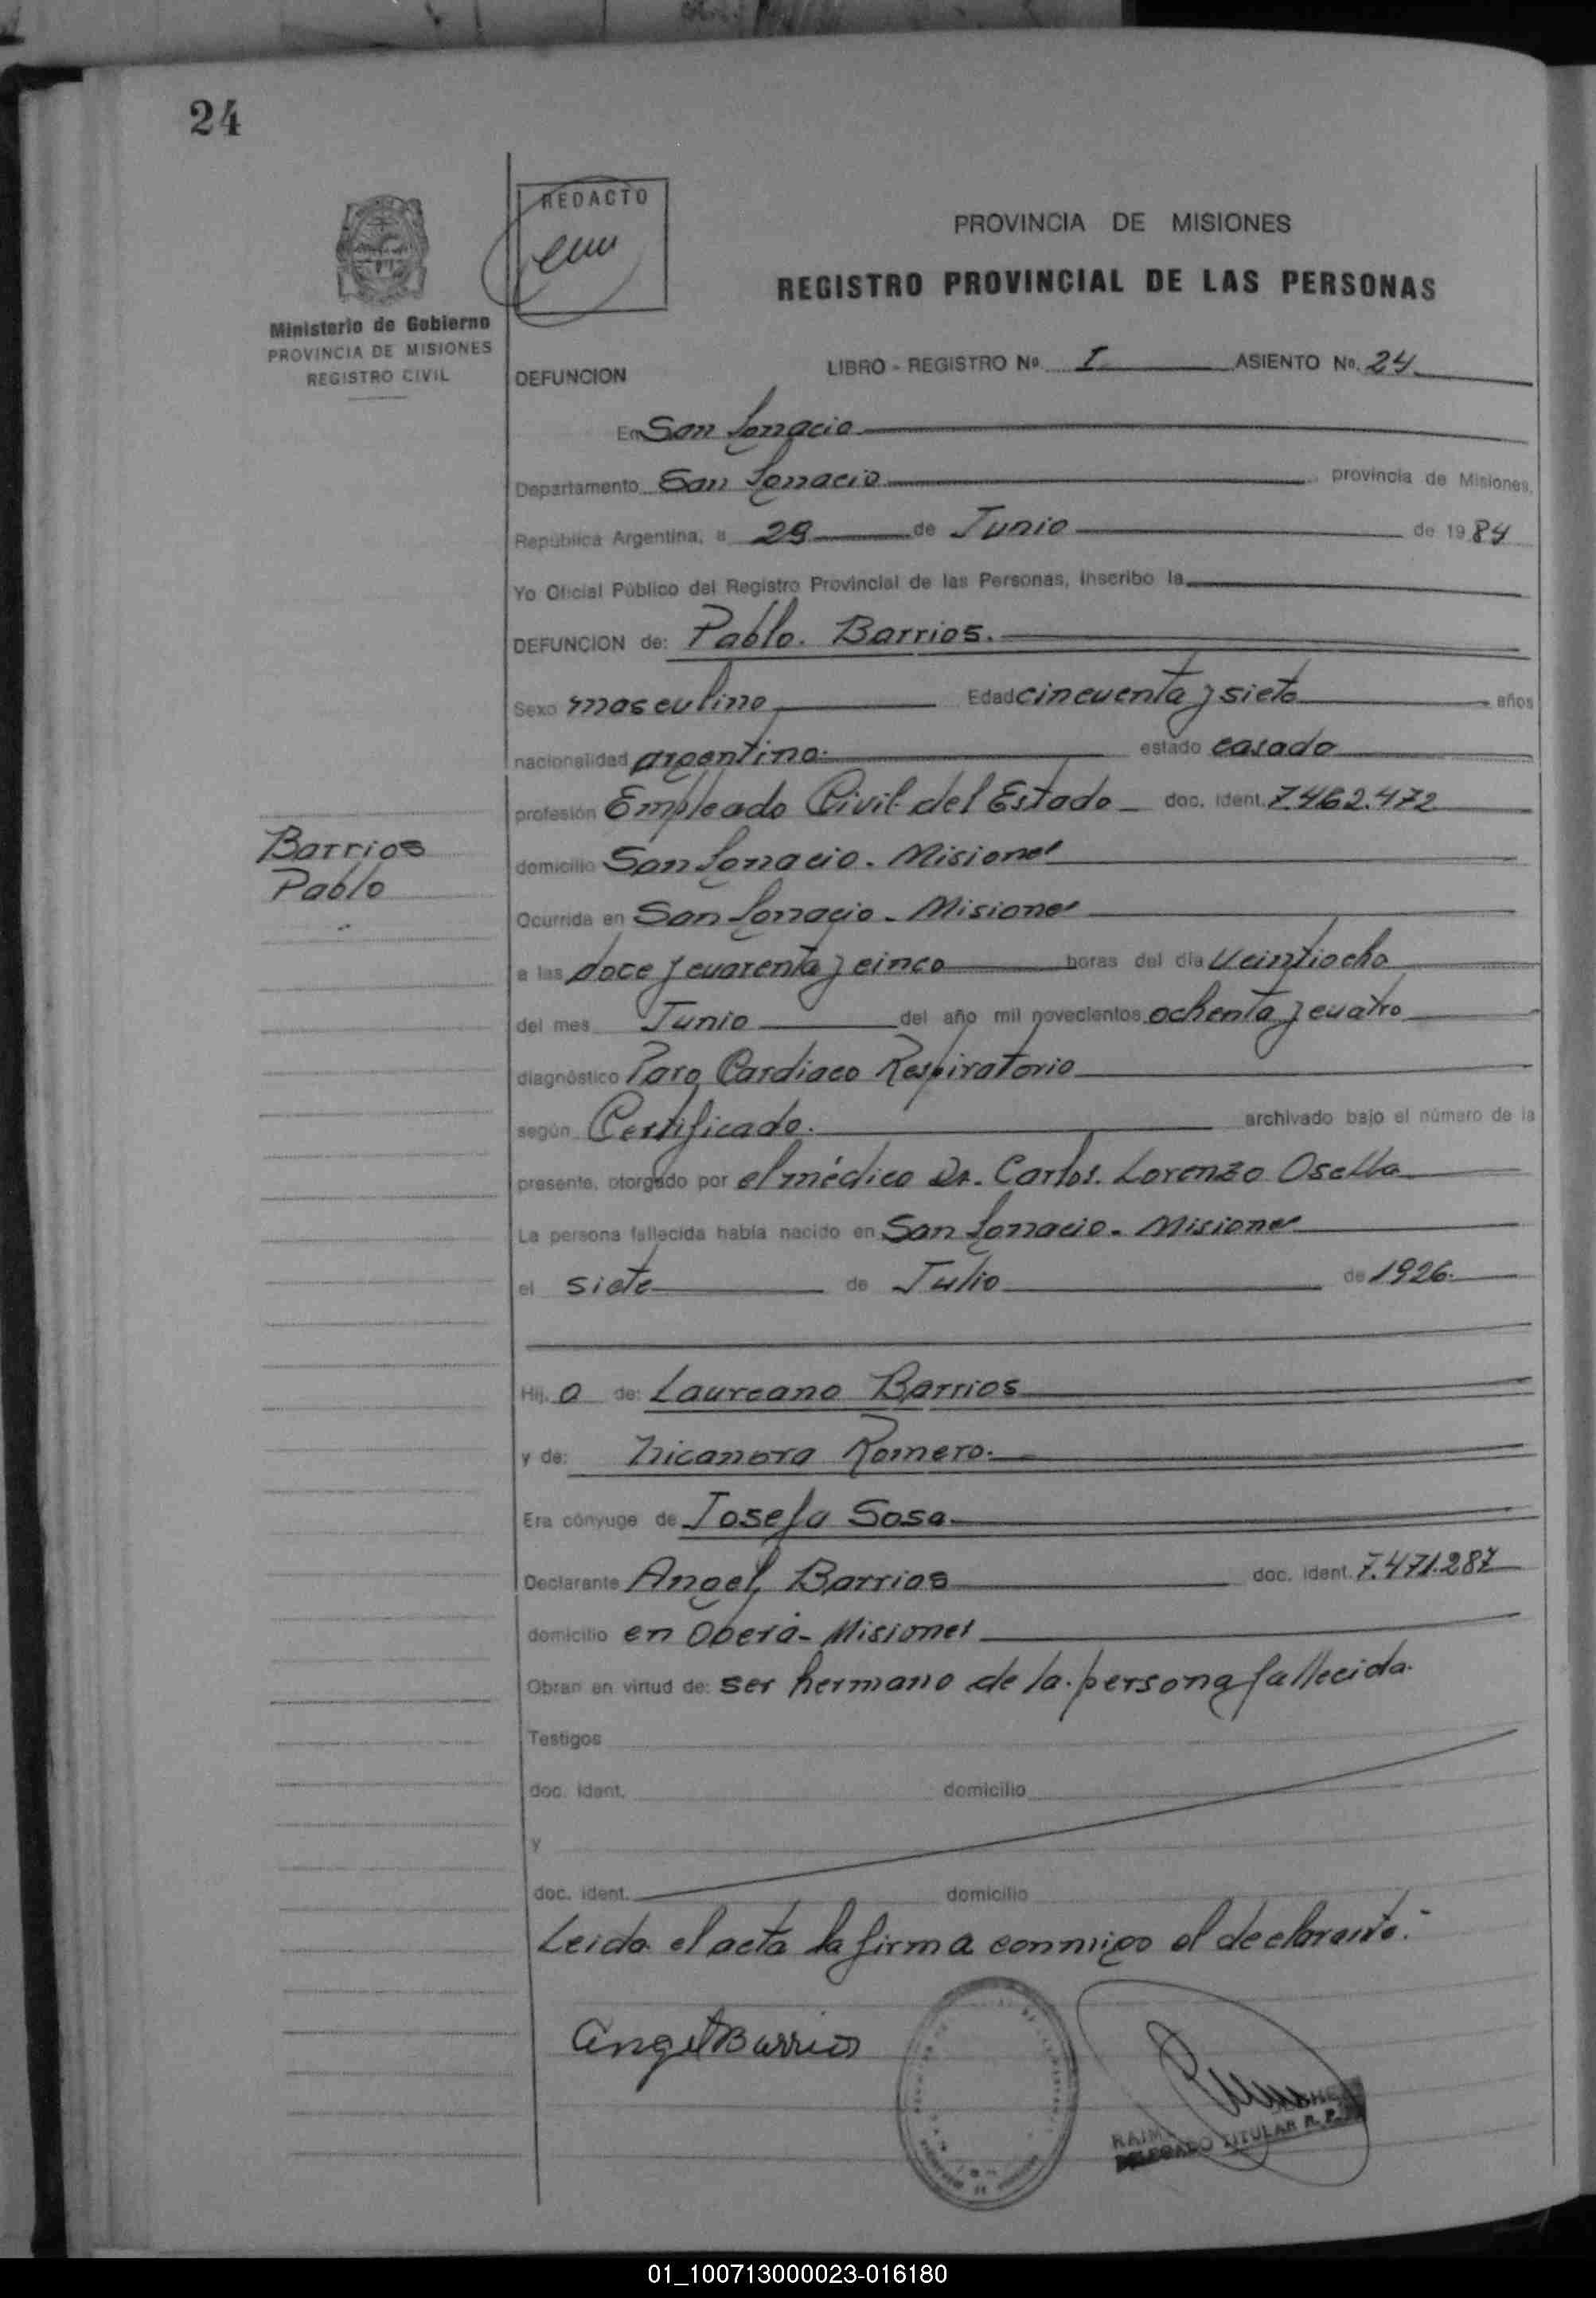 24
REDACTO
PROVINCIA DE MISIONES
REGISTRO PROVINCIAL DE LAS PERSONAS
Ministerio de Gobierno
PROVINCIA DE MISIONES
REGISTRO CIVIL
DEFUNCION
LIBRO - REGISTRO Nº. I ASIENTO Nº. 24
En San Ignacio
Departamento San Ignacio provincia de Misiones,
República Argentina, a 29 de Junio de 1984
Yo Oficial Público del Registro Provincial de las Personas, inscribo la
DEFUNCION de: Pablo. Barrios.
Sexo masculino Edad cincuenta y siete años
nacionalidad argentina. estado casado
profesión Empleado Civil del Estado doc. ident. 7.462.472
Barrios
Pablo
domicilio San Ignacio - Misiones
Ocurrida en San Ignacio - Misiones
a las doce y cuarenta y cinco horas del día veintiocho
del mes Junio del año mil novecientos ochenta y cuatro
diagnóstico Paro Cardiaco Respiratorio
según Certificado. archivado bajo el número de la
presente, otorgado por el médico Dr. Carlos. Lorenzo Osella
La persona fallecida había nacido en San Ignacio - Misiones
el siete de Julio de 1926.
Hij o de: Laureano Barrios
y de: Nicanora Romero.
Era cónyuge de Josefa Sosa
Declarante Angel Barrios doc. ident. 7.471.287
domicilio en Oberá - Misiones
Obran en virtud de: ser hermano de la persona fallecida.
Testigos
doc. ident. domicilio
y
doc. ident. domicilio
Leida el acta la firma conmigo el declarante.-
Angel Barrios
DELEGADO TITULAR R. P.
01_100713000023-016180